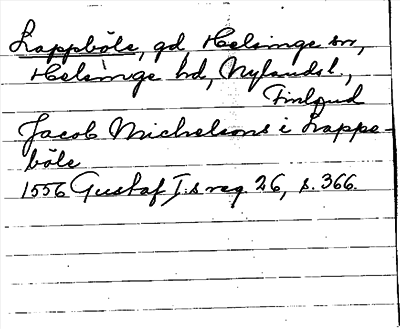 Lappböle, gd Helsinge sn,
Helsinge hd, Nylands l.,
Finland
Jacob Michelsons i Lappe-
böle
1556 Gustaf I:s reg 26, s. 366.